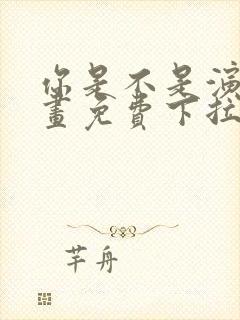 你是不是演
畫免費下拉
芊舟